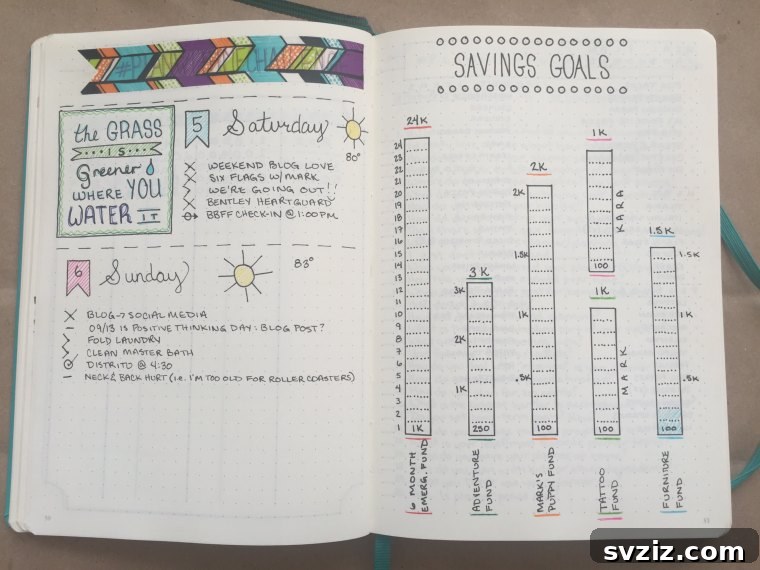 the GRASS
IS
Greener
WHERE YOU
WATER IT
5 Saturday
80°
X WEEKEND BLOG LOVE
X SIX FLAGS W/MARK
> WE'RE GOING OUT!!
X BENTLEY HEARTGUARD
BBFF CHECK-IN @ 1:00 PM
6 Sunday
83°
X BLOG → SOCIAL MEDIA
- 09/13 IS POSITIVE THINKING DAY: BLOG POST?
> FOLD LAUNDRY
> CLEAN MASTER BATH
DISTRITO @ 4:30
- NECK & BACK HURT (i.e. I'M TOO OLD FOR ROLLER COASTERS)
SAVINGS GOALS
24K
24
23
22
21
20
19
18
17
16
15
14
13
12
11
10
9
8
7
6
5
4
3
2
1
1K
6 MONTH
EMERG. FUND
3K
3K
2K
1K
250
ADVENTURE
FUND
2K
2K
1.5K
1K
.5K
100
MARK'S
PUPPY FUND
1K
KARA
100
1K
MARK
100
TATTOO
FUND
1.5K
1.5K
1K
.5K
100
FURNITURE
FUND
svziz.com